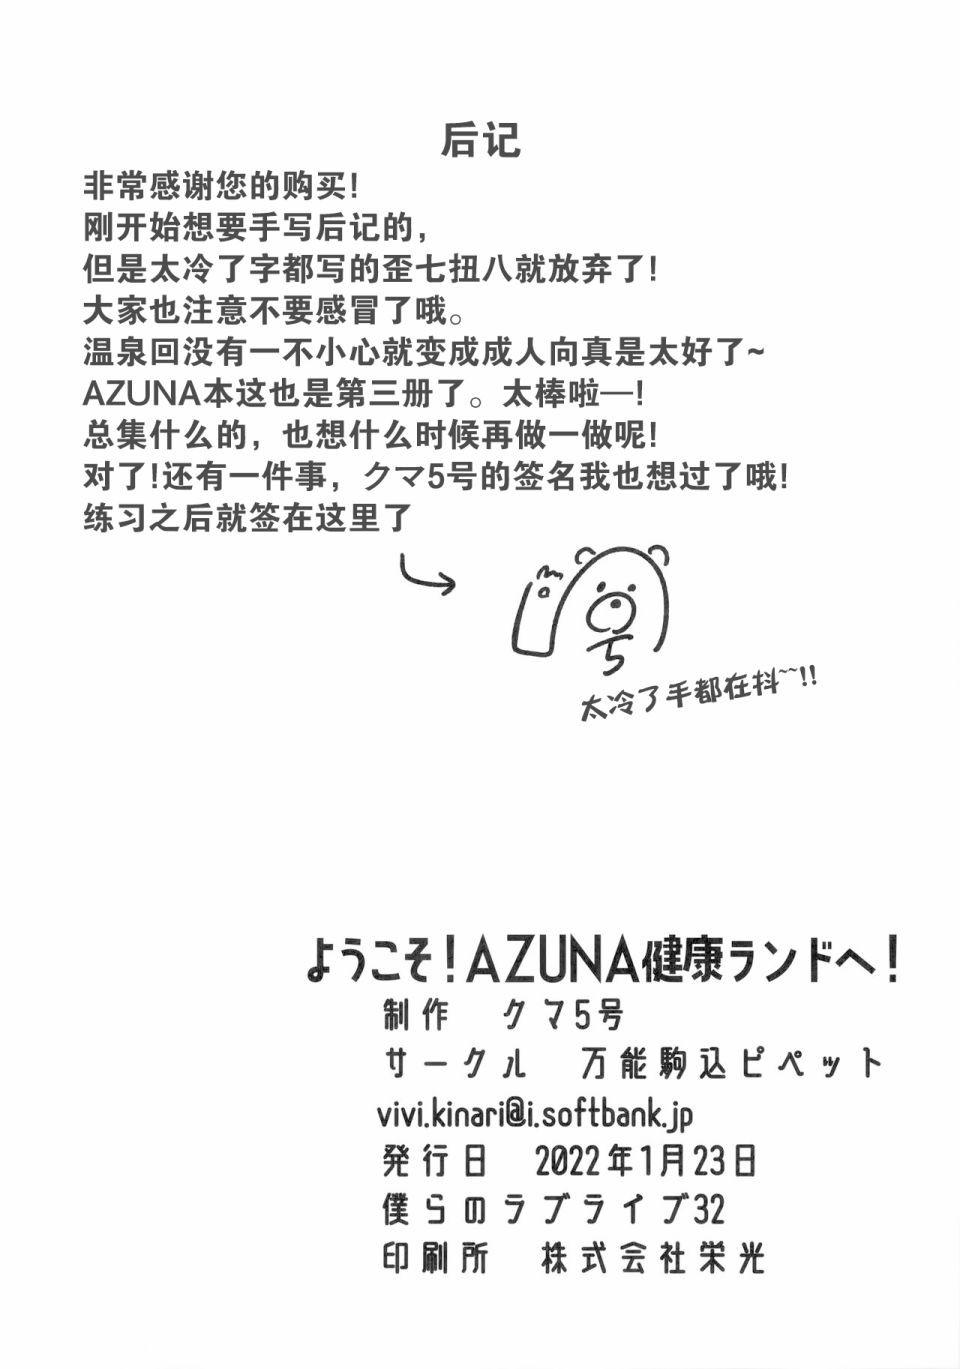 后记
非常感谢您的购买!
刚开始想要手写后记的,
但是太冷了字都写的歪七扭八就放弃了!
大家也注意不要感冒了哦。
温泉回没有一不小心就变成成人向真是太好了~
AZUNA本这也是第三册了。太棒啦—!
总集什么的，也想什么时候再做一做呢!
对了!还有一件事，クマ5号的签名我也想过了哦!
练习之后就签在这里了
5
太冷了手都在抖~~!!
ようこそ!AZUNA健康ランドへ!
制作 クマ5号
サークル 万能駒込ピペット
vivi.kinari@i.softbank.jp
発行日 2022年1月23日
僕らのラブライブ32
印刷所 株式会社栄光